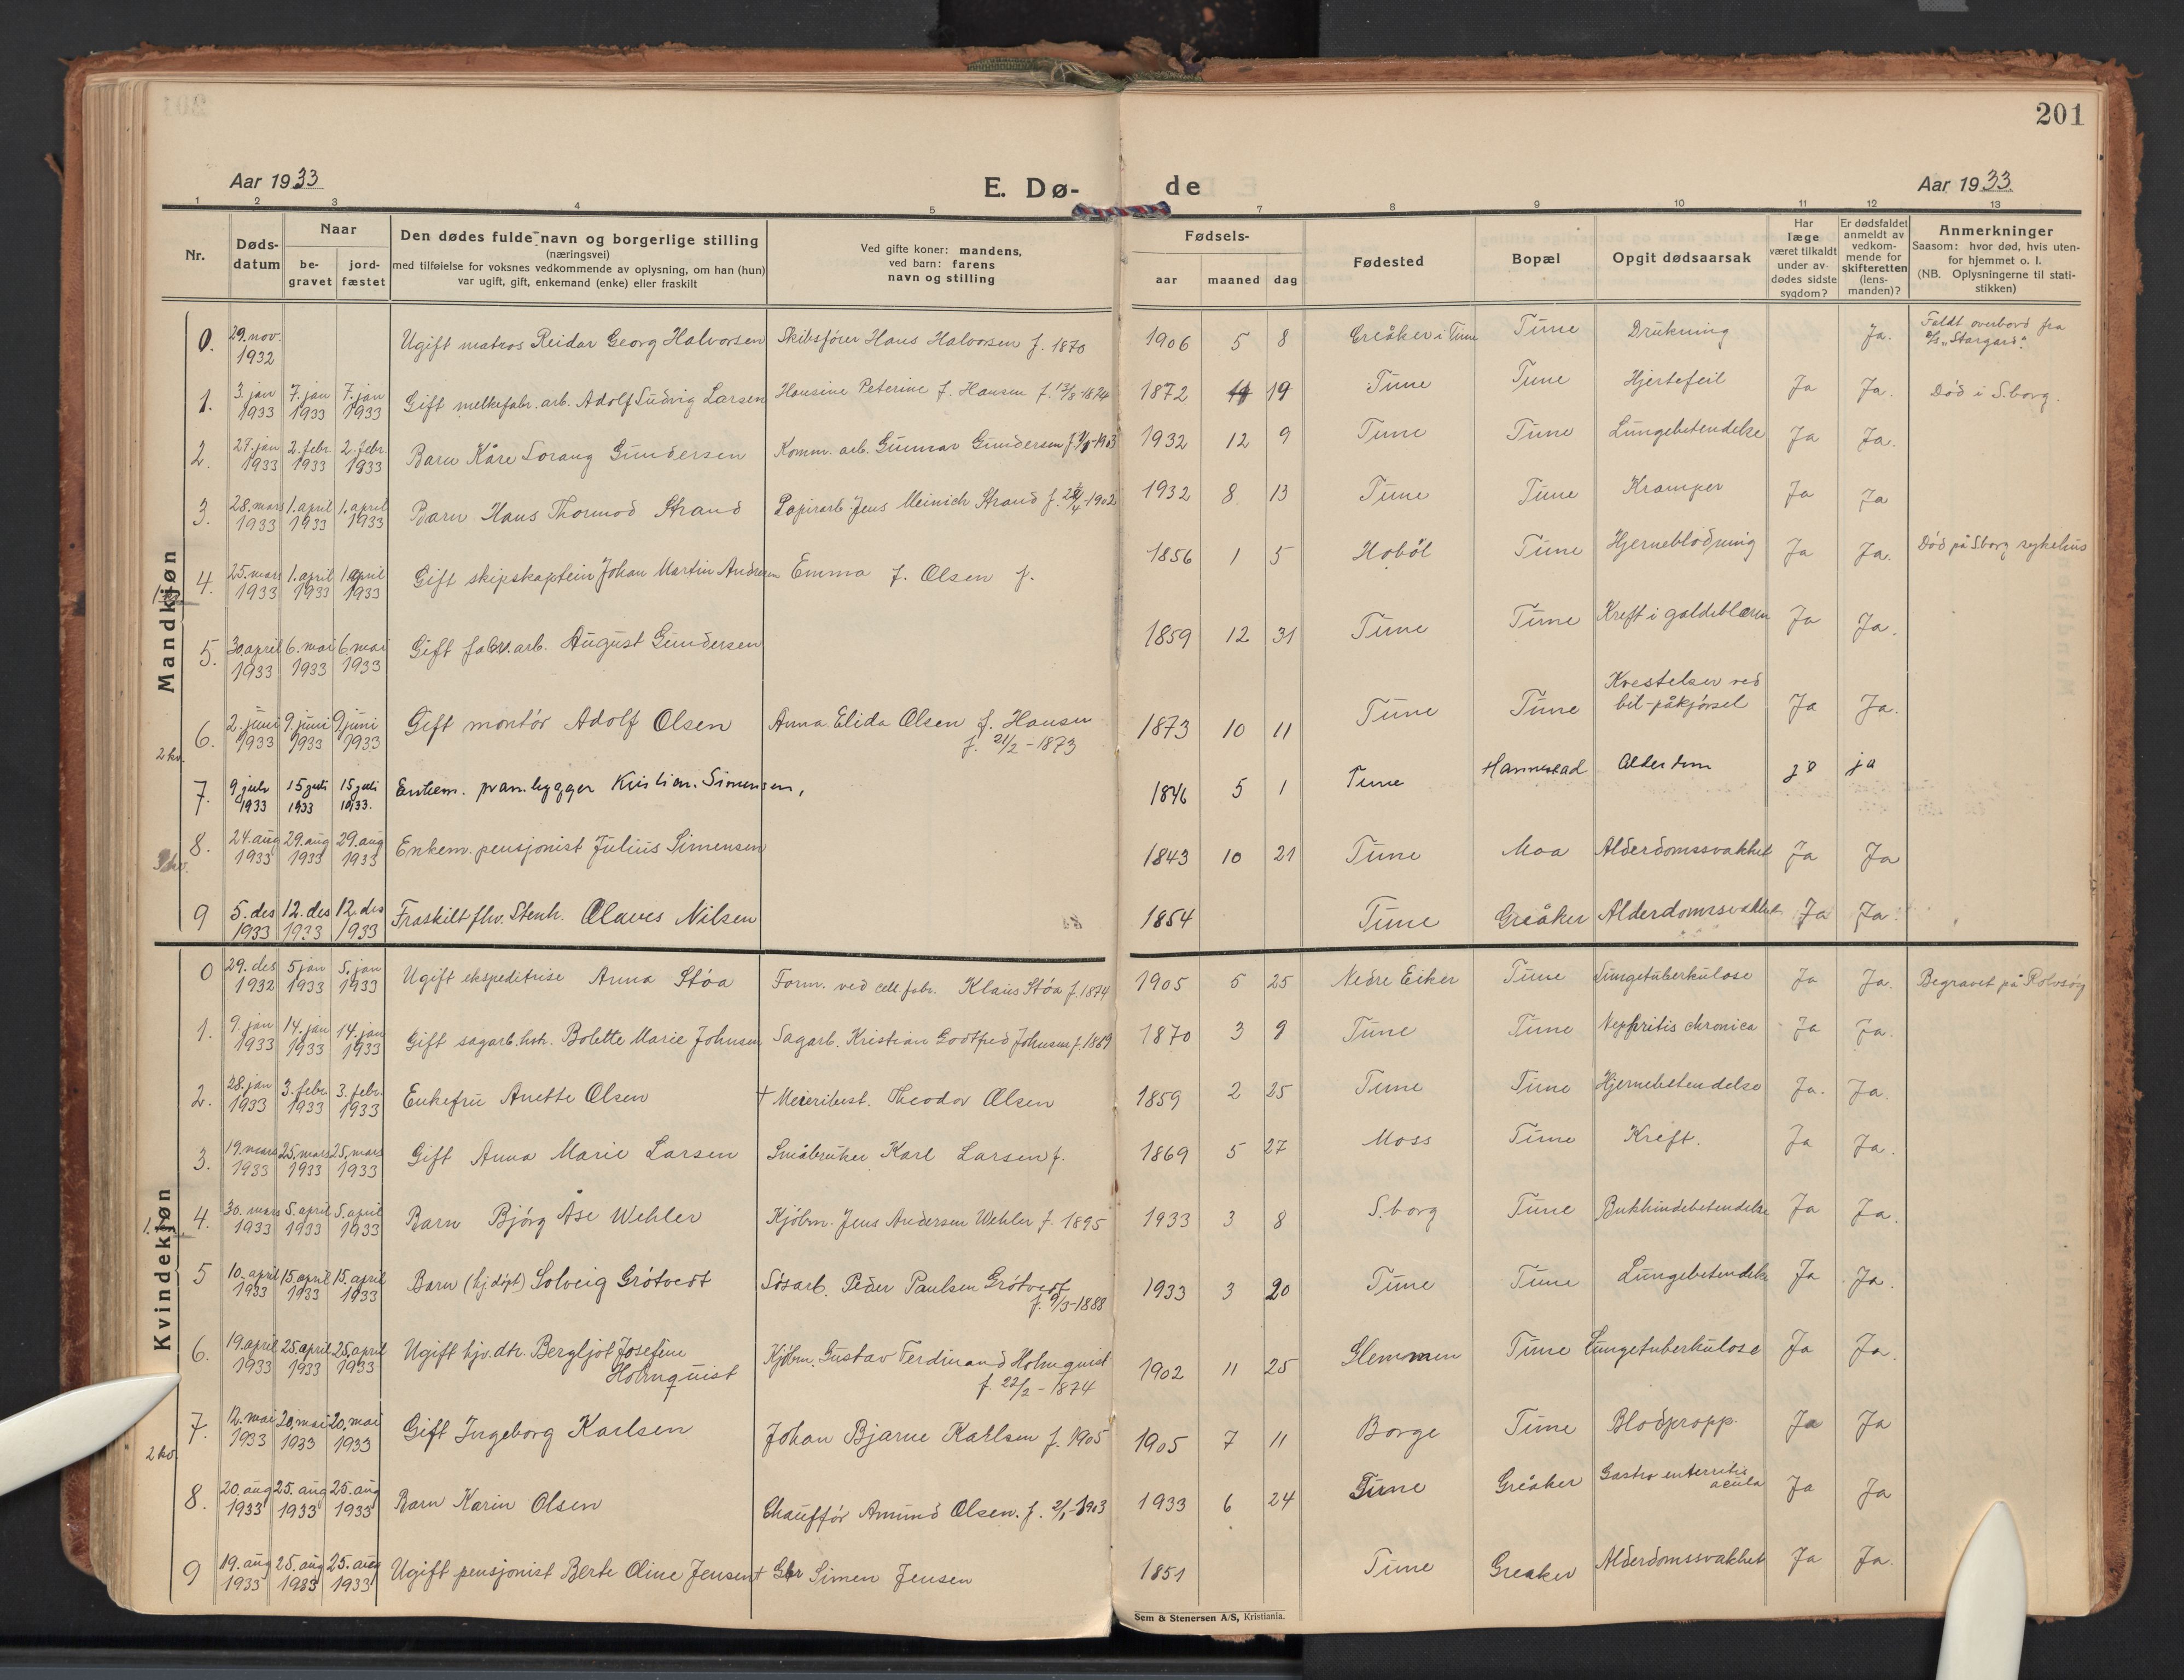 201
Aar 1933
E. Dø-
de
Aar 1933
1 2 3 4 5 7 8 9 10 11 12 13
Nr.
Døds-
datum
Naar
be-
gravet
jord-
fæstet
Den dødes fulde navn og borgerlige stilling
(næringsvei)
med tilføielse for voksnes vedkommende av oplysning, om han (hun)
var ugift, gift, enkemand (enke) eller fraskilt
Ved gifte koner: mandens,
ved barn: farens
navn og stilling
Fødsels-
aar maaned dag
Fødested
Bopæl
Opgit dødsaarsak
Har
læge
været tilkaldt
under av-
dødes sidste
sygdom?
Er dødsfaldet
anmeldt av
vedkom-
mende for
skifteretten
(lens-
manden)?
Anmerkninger
Saasom: hvor død, hvis uten-
for hjemmet o. l.
(NB. Oplysningerne til stati-
stikken)
Mandkjøn
0. 29. nov. 1932 Ugift matros Reidar Georg Halvorsen Skibsfører Hans Halvorsen f. 1870 1906 5 8 Greåker i Tune Tune Drukning Ja. Faldt overbord fra D/S „Stargard".
1. 3. jan 1933 7. jan 1933 7. jan 1933 Gift melkefabr. arb. Adolf Ludvig Larsen Hansine Peterine f. Hansen f. 13/8-1874 1872 19 Tune Tune Hjertefeil Ja Ja. Død i S.borg.
2. 27. jan 1933 2. febr. 1933 2. febr. 1933 Barn Kåre Lorang Gundersen Komm. arb. Gunnar Gundersen 1932 12 9 Tune Tune Lungebetendelse Ja Ja.
3. 28. mars 1933 1. april 1933 1. april 1933 Barn Hans Thormod Strand Papirarb. Jens Meinich Strand f. 1902 1932 8 13 Tune Tune Kramper Ja Ja
4. 25. mars 1933 1. april 1933 1 april 1933 Gift skipskaptein Johan Martin Andresen Emma f. Olsen f. 1856 1 5 Hobøl Tune Hjerneblødning Ja Ja. Død på S.borg sykehus
5. 30. april 1933 6. mai 1933 6. mai 1933 Gift fabr. arb. August Gundersen 1859 12 31 Tune Tune Kreft i galdeblæren Ja Ja.
6. 2. juni 1933 9. juni 1933 9 juni 1933 Gift montør Adolf Olsen Anna Elida Olsen f. Hansen f. 21/2-1873 1873 10 11 Tune Tune Kvestelser ved bil-påkjørsel Ja Ja.
2 kv.
7. 9 juli 1933 15 juli 1933 15 juli 1933. Enkem. prambygger Kristian Simensen, 1846 5 1 Tune Hannestad Alderdom ja ja
8. 24. aug 1933 29. aug 1933 29. aug 1933 Enkem. pensjonist Julius Simensen 1843 10 21 Tune Moa Alderdomssvakhet Ja Ja
3 kv.
9 5. des 1933 12. des 1933 12. des 1933 Fraskilt fhv. Stenh. Olaves Nilsen 1854 Tune Greåker Alderdomssvakhet Ja Ja.
Kvindekjøn
0 29. des 1932 5 jan 1933 5. jan 1933 Ugift ekspeditrise Anna Støa Form. ved cell. fabr. Klaus Støa f. 1874 1905 5 25 Nedre Eiker Tune Lungetuberkulose Ja Ja. Begravet på Rolvsøy
1. 9. jan 1933 14. jan 1933 14. jan 1933 Gift sagarb. hst. Bolette Marie Johnsen Sagarb. Kristian Godtfred Johnsen f. 1869 1870 3 9 Tune Tune Nephritis chronica Ja Ja.
2. 28. jan 1933 3. febr. 1933 3. febr. 1933 Enkefru Anette Olsen † Meieribest. Theodor Olsen 1859 2 25 Tune Tune Hjernebetendelse Ja. Ja.
3. 19. mars 1933 25. mars 1933 25. mars 1933 Gift Anna Marie Larsen Småbruker Karl Larsen f. 1869 5 27 Moss Tune Kreft. Ja Ja.
4. 30. mars 1933 5. april 1933 5. april 1933 Barn Bjørg Åse Wehler Kjøbm. Jens Andersen Wehler f. 1895 1933 3 8 S.borg Tune Bukhindebetendelse Ja Ja.
5 10. april 1933 15. april 1933 15. april 1933 Barn (hj.døpt) Solveig Grøtvedt Løsarb. Peder Paulsen Grøtvedt f. 9/3-1888 1933 3 20 Tune Tune Lungebetendelse Ja Ja.
6. 19. april 1933 25. april 1933 25. april 1933 Ugift hjv. dtr. Bergljot Josefine Holmquist Kjøbm. Gustav Ferdinand Holmquist f. 22/2-1874 1902 11 25 Glemmen Tune Lungetuberkulose Ja Ja.
7. 12. mai 1933 20. mai 1933 20. mai 1933 Gift Ingeborg Karlsen Johan Bjarne Karlsen f. 1905 1905 7 11 Borge Tune Blodpropp. Ja Ja
2 kv.
8. 20. aug 1933 25. aug 1933 25. aug 1933 Barn Karin Olsen Chauffør Amund Olsen. f. 2/1-1903 1933 6 24 Tune Greåker Gastro enterritis acuta Ja Ja
9 19. aug 1933 25. aug 1933 25. aug 1933 Ugift pensjonist Berte Oline Jensen † Gbr Simen Jensen 1851 Tune Greaker Alderdomssvakhet Ja Ja.
Sem & Stenersen A/S, Kristiania.